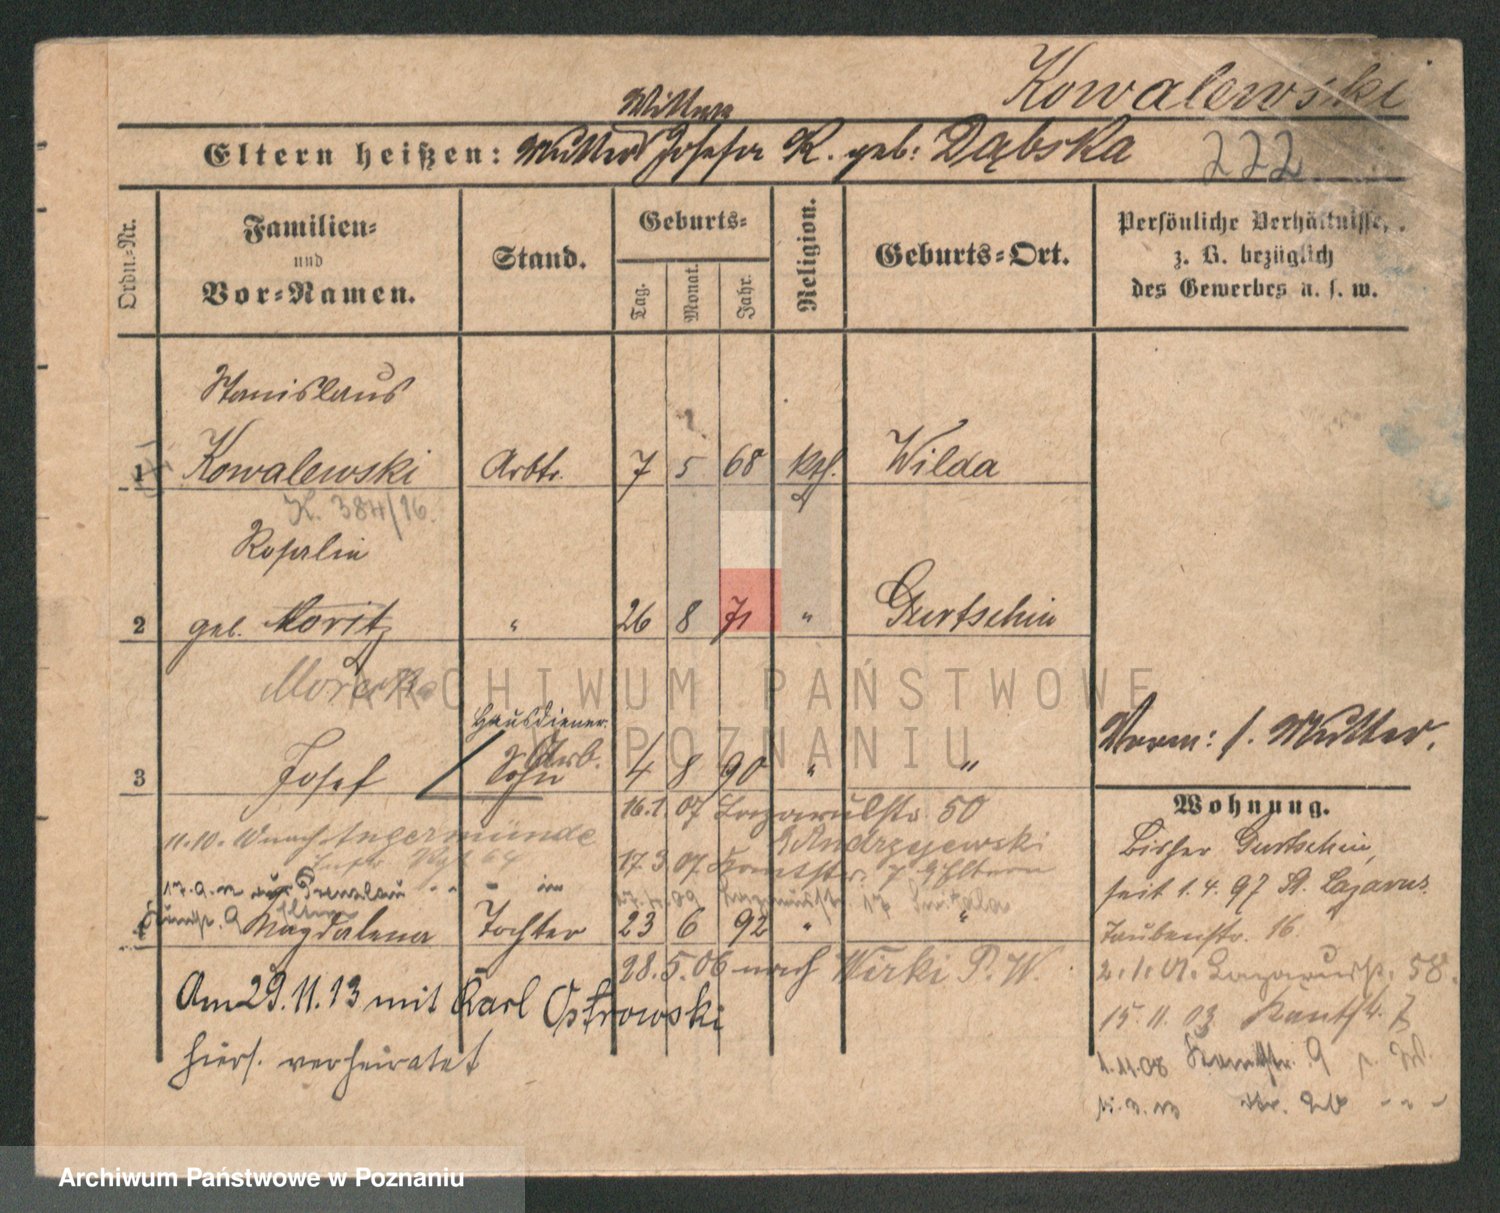 Kowalewski
Wittwe
Eltern heißen: Mutter Josefa K. geb: Dąbska
222
Ordn.-Nr.
Familien-
und
Vor-Namen.
Stand.
Geburts-
Tag.
Monat.
Jahr.
Religion.
Geburts-Ort.
Persönliche Verhältnisse,
z. B. bezüglich
des Gewerbes u. s. w.
Stanislaus
1 Kowalewski Arbtr. 7 5 68 kth. Wilda
K. 384/16.
Rosalie
2 geb. Moritz " 26 8 71 " Gurtschin
ARCHIWUM PAŃSTWOWE
W POZNANIU
Hausdiener
Arb.
3 Josef Sohn 4 8 90 " "
Verm: s. Mutter.
16.1.07 Lazarusstr. 50
Andrzejewski
11.10. nach Angermünde
17.3.07. Kantstr. 7 Eltern
Prenzlau
4 Magdalena Tochter 23 6 92 " "
28.5.06 nach Wirki P. W.
Am 29.11.13 mit Karl Ostrowski
hiers. verheiratet
Wohnung.
Bisher Gurtschin,
seit 1.4.97 St. Lazarus
Taubenstr. 16.
Lazarusstr. 58.
15.11.03 Kantstr. 7
1.11.08 Kantstr. 9
Archiwum Państwowe w Poznaniu